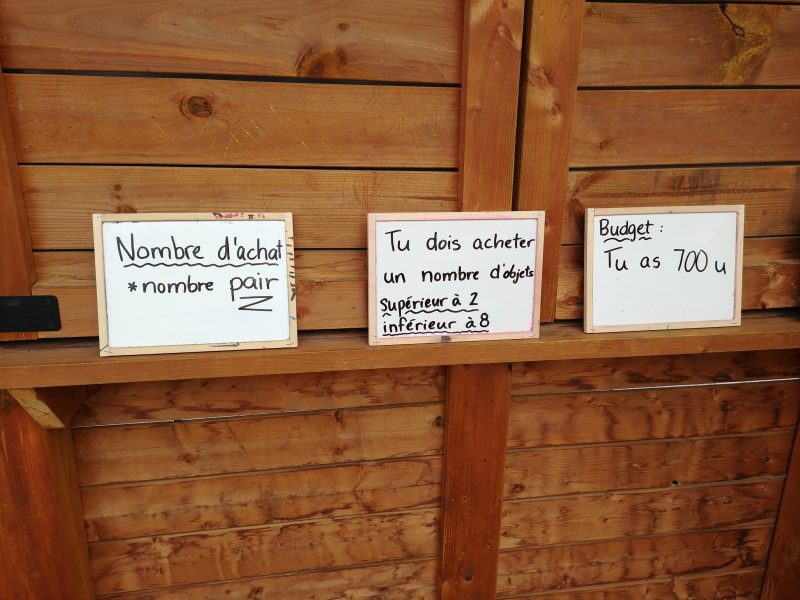 Nombre d'achat
*nombre pair
Tu dois acheter
un nombre d'objets
supérieur à 2
inférieur à 8
Budget :
Tu as 700 u